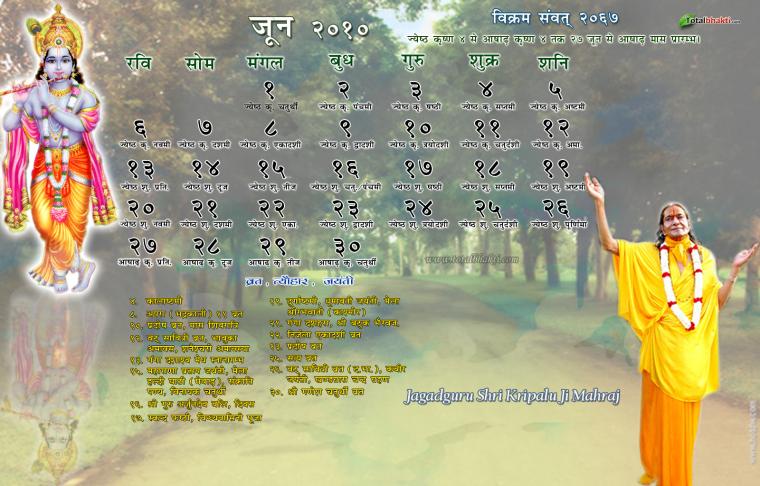 जून २०१०
विक्रम संवत् २०६७
Totalbhakti.com
ज्येष्ठ कृष्णा ४ से आषाढ़ कृष्णा ४ तक २७ जून से आषाढ़ मास प्रारम्भ।
रवि सोम मंगल बुध गुरु शुक्र शनि
१ २ ३ ४ ५
ज्येष्ठ कृ. चतुर्थी ज्येष्ठ कृ. पंचमी ज्येष्ठ कृ. षष्ठी ज्येष्ठ कृ. सप्तमी ज्येष्ठ कृ. अष्टमी
६ ७ ८ ९ १० ११ १२
ज्येष्ठ कृ. नवमी ज्येष्ठ कृ. दशमी ज्येष्ठ कृ. एकादशी ज्येष्ठ कृ. द्वादशी ज्येष्ठ कृ. त्रयोदशी ज्येष्ठ कृ. चतुर्दशी ज्येष्ठ कृ. अमा.
१३ १४ १५ १६ १७ १८ १९
ज्येष्ठ शु. प्रति. ज्येष्ठ शु. दूज ज्येष्ठ शु. तीज ज्येष्ठ शु. चतु./पंचमी ज्येष्ठ शु. षष्ठी ज्येष्ठ शु. सप्तमी ज्येष्ठ शु. अष्टमी
२० २१ २२ २३ २४ २५ २६
ज्येष्ठ शु. नवमी ज्येष्ठ शु. दशमी ज्येष्ठ शु. एका. ज्येष्ठ शु. द्वादशी ज्येष्ठ शु. त्रयोदशी ज्येष्ठ शु. चतुर्दशी ज्येष्ठ शु. पूर्णिमा
२७ २८ २९ ३०
आषाढ़ कृ. प्रति. आषाढ़ कृ. दूज आषाढ़ कृ. तीज आषाढ़ कृ. चतुर्थी
www.totalbhakti.com
व्रत , त्यौहार , जयंती
४. कालाष्टमी
८. (भद्रकाली) ११ व्रत
१०. प्रदोष व्रत, मास शिवरात्रि
१२. वट सावित्री व्रत, भावुका
अमावस, शनैश्चरी अमावस्या
१३. गंगा दशाश्वमेध स्नानारम्भ
१५. महाराणा प्रताप जयंती, मेला
हल्दी घाटी (मेवाड़), संक्रांति
पुण्य, विनायक चतुर्थी
१६. श्री गुरु अर्जुनदेव बलि. दिवस
१७. स्कन्द षष्ठी, विन्ध्यवासिनी पूजा
१९. दुर्गाष्टमी, धूमावती जयंती, मेला
क्षीरभवानी (कश्मीर)
२१. गंगा दशहरा, श्री बटुक भैरव ज.
२२. निर्जला एकादशी व्रत
२३. प्रदोष व्रत
२५. सत्य व्रत
२६. वट सावित्री व्रत (द.भा.), कबीर
जयंती, खण्डग्रास चन्द्र ग्रहण
३०. श्री गणेश चतुर्थी व्रत
Jagadguru Shri Kripalu Ji Mahraj